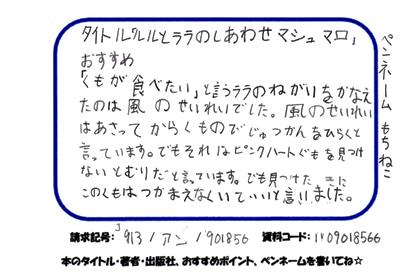 タイトルルルとララのしあわせマシュマロ」
おすすめ
「くもが食べたい」と言うララのねがいをかなえ
たのは風のせいれいでした。風のせいれい
はあさってからくもので じゅつかんをひらくと
言っています。でもそれはピンクハートぐもを見つけ
ないとむりだと言っています。でも見つけたときに
このくもはつかまえなくいていいと言いました。
ペンネーム もちねこ
請求記号: J913/アン/901856 資料コード: 1109018566
本のタイトル・著者・出版社、おすすめポイント、ペンネームを書いてね☆